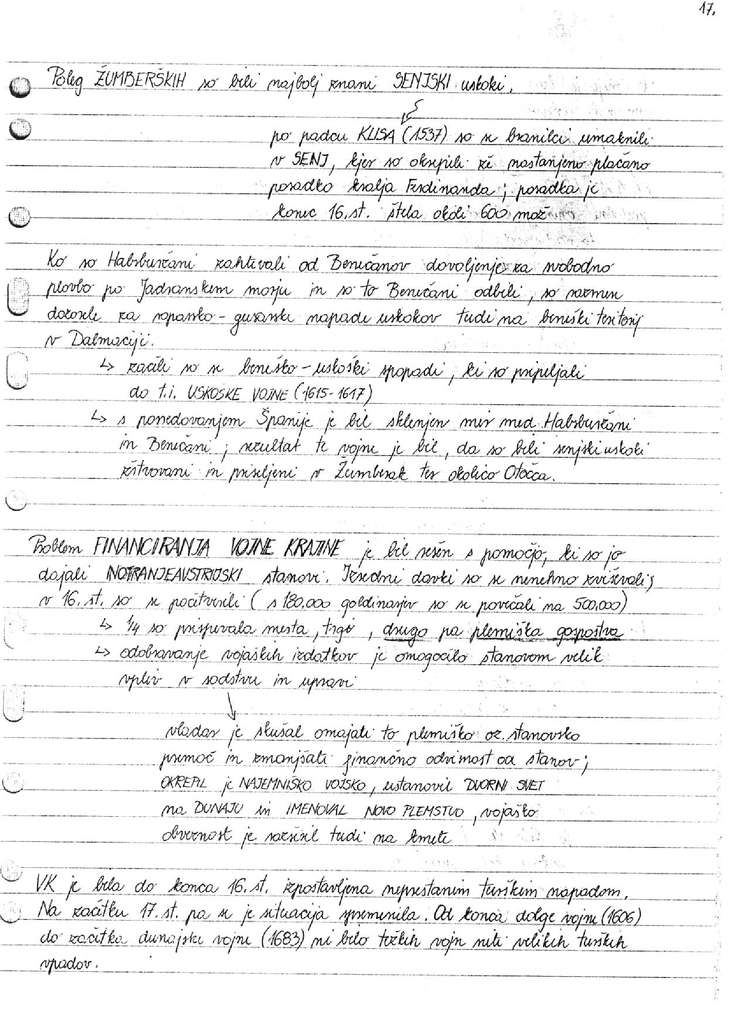 17.
Poleg ŽUMBERŠKIH so bili najbolj znani SENJSKI uskoki,
po padcu KLISA (1537) so se branilci umaknili
v SENJ, kjer so okrepili že nastanjeno plačano
posadko kralja Ferdinanda; posadka je
konec 16. st. štela okoli 600 mož
Ko so Habsburčani zahtevali od Benečanov dovoljenje za svobodno
plovbo po Jadranskem morju in so to Benečani odbili, so
za roparsko - gusarske napade uskokov tudi na beneški teritorij
v Dalmaciji.
↳ začeli so se beneško - uskoški spopadi, ki so pripeljali
do t.i. USKOŠKE VOJNE (1615-1617)
↳ s posredovanjem Španije je bil sklenjen mir med Habsburčani
in Benečani; rezultat te vojne je bil, da so bili senjski uskoki
in preseljeni v Žumberak ter okolico Otočca.
Problem FINANCIRANJA VOJNE KRAJINE je bil rešen s pomočjo, ki so jo
dajali NOTRANJEAVSTRIJSKI stanovi. Izredni davki so se nenehno zviševali;
v 16. st. so se početverili (s 180.000 goldinarjev so se povečali na 500.000)
↳ 1/4 so prispevala mesta, trgi, drugo pa plemiška gospostva
↳ odobravanje vojaških izdatkov je omogočilo stanovom velik
vpliv v sodstvu in upravi
vladar je skušal omajati to plemiško oz. stanovsko
premoč in zmanjšati finančno odvisnost od stanov;
OKREPIL je NAJEMNIŠKO VOJSKO, ustanovil DVORNI SVET
na DUNAJU in IMENOVAL NOVO PLEMSTVO, vojaško
obveznost je razširil tudi na kmete
VK je bila do konca 16. st. izpostavljena neprestanim turškim napadom.
Na začetku 17. st. pa se je situacija spremenila. Od konca dolge vojne (1606)
do začetka dunajske vojne (1683) ni bilo težkih vojn niti velikih turških
vpadov.